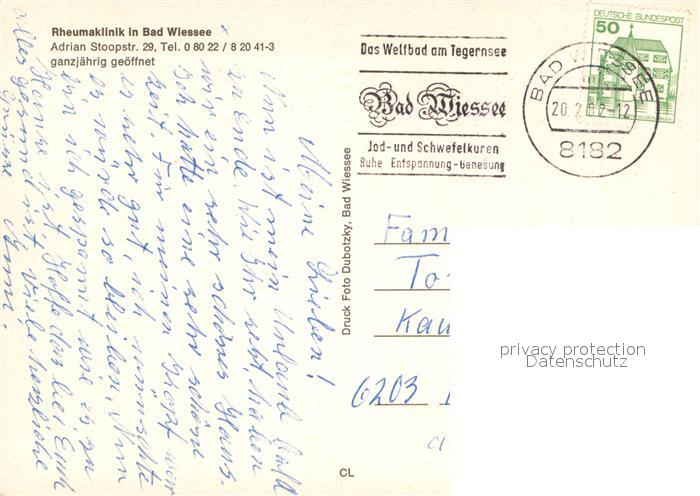 Rheumaklinik in Bad Wiessee
Adrian Stoopstr. 29, Tel. 0 80 22 / 8 20 41-3
ganzjährig geöffnet
Das Weltbad am Tegernsee
Bad Wiessee
Jod- und Schwefelkuren
Ruhe Entspannung-Genesung
DEUTSCHE BUNDESPOST
50
BAD WIESSEE
8182
Meine Lieben!
Nun ist mein Urlaub bald
zu Ende. Wie Ihr seht, haben
wir ein sehr schönes Haus.
Ich hatte eine sehr schöne
Zeit. Für meinen Kopf war
es sehr gut, ich wünschte
es würde so bleiben. Nun
bin ich gespannt wie es zu
Hause ist. Hoffe das bei Euch
alles gesund ist. Viele herzliche
Grüsse
Druck Foto Dubotzky, Bad Wiessee
CL
Fam
To
Kau
6203
privacy protection
Datenschutz